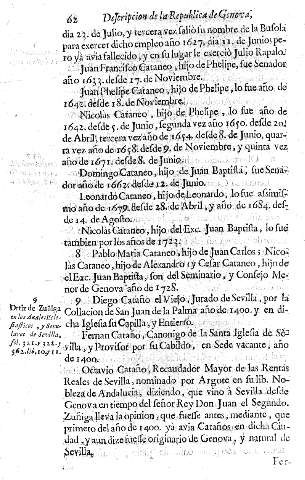 62 Descripcion de la Republica de Genova,
dia 23. de Julio, y tercera vez salió su nombre de la Busola
para exercer dicho empleo año 1627. dia 11. de Junio; pe-
ro ya avia fallecido; y en su lugar le exerció Julio Rapalo.
Juan Francisco Cataneo, hijo de Phelipe, fue Senador
año 1633. desde 17. de Noviembre.
Juan Phelipe Cataneo, hijo de Phelipe, lo fue año de
1642. desde 18. de Noviembre.
Nicolás Cataneo, hijo de Phelipe, lo fue año de
1642. desde 5. de Junio, segunda vez año 1650. desde 21.
de Abril, tercera vez año de 1654. desde 8. de Junio, quar-
ta vez año de 1658. desde 9. de Noviembre, y quinta vez
año de 1671. desde 8. de Junio.
Domingo Cataneo, hijo de Juan Baptista, fue Sena-
dor año de 1662. desde 12. de Junio.
Leonardo Cataneo, hijo de Leonardo, lo fue assimis-
mo año de 1679. desde 28. de Abril, y año de 1684. des-
de 14. de Agosto.
Nicolás Cataneo, hijo del Exc. Juan Baptista, lo fue
tambien por los años de 1723.
8 Pablo Maria Cataneo, hijo de Juan Carlos; Nico-
lás Cataneo, hijo de Alexandro; y Cesar Cataneo, hijo de
el Exc. Juan Baptista, son del Seminario, y Consejo Me-
nor de Genova año de 1728.
9 Diego Cataño el Viejo, Jurado de Sevilla, por la
Collacion de San Juan de la Palma año de 1400. y en di-
cha Iglesia su Capilla, y Entierro.
Fernan Cataño, Canonigo de la Santa Iglesia de Se-
villa, y Provisor por su Cabildo, en Sede vacante, año
de 1400.
Octavio Cataño, Recaudador Mayor de las Rentas
Reales de Sevilla, nominado por Argote en su lib. No-
bleza de Andalucia, diziendo, que vino à Sevilla desde
Genova en tiempo del señor Rey Don Juan el Segundo.
Zuñiga lleva la opinion, que fuesse antes, mediante, que
primero del año de 1400. ya avia Cataños en dicha Ciu-
dad, y aun dize fuesse originario de Genova, y natural de
Sevilla.
Fer-
9
Ortiz de Zuñiga
en los Anales Ecle-
siasticos, y Secu-
lares de Sevilla,